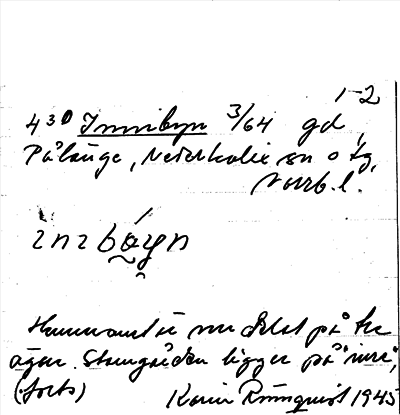 1-2
430 Innibyn 3/64 gd
Pålänge, Nederkalix sn o tg,
Norrb. l.
Hemmanet är nu delat på tre
ägor. Stomgården ligger på "inre",
(forts) Karin Rönnquist 1945